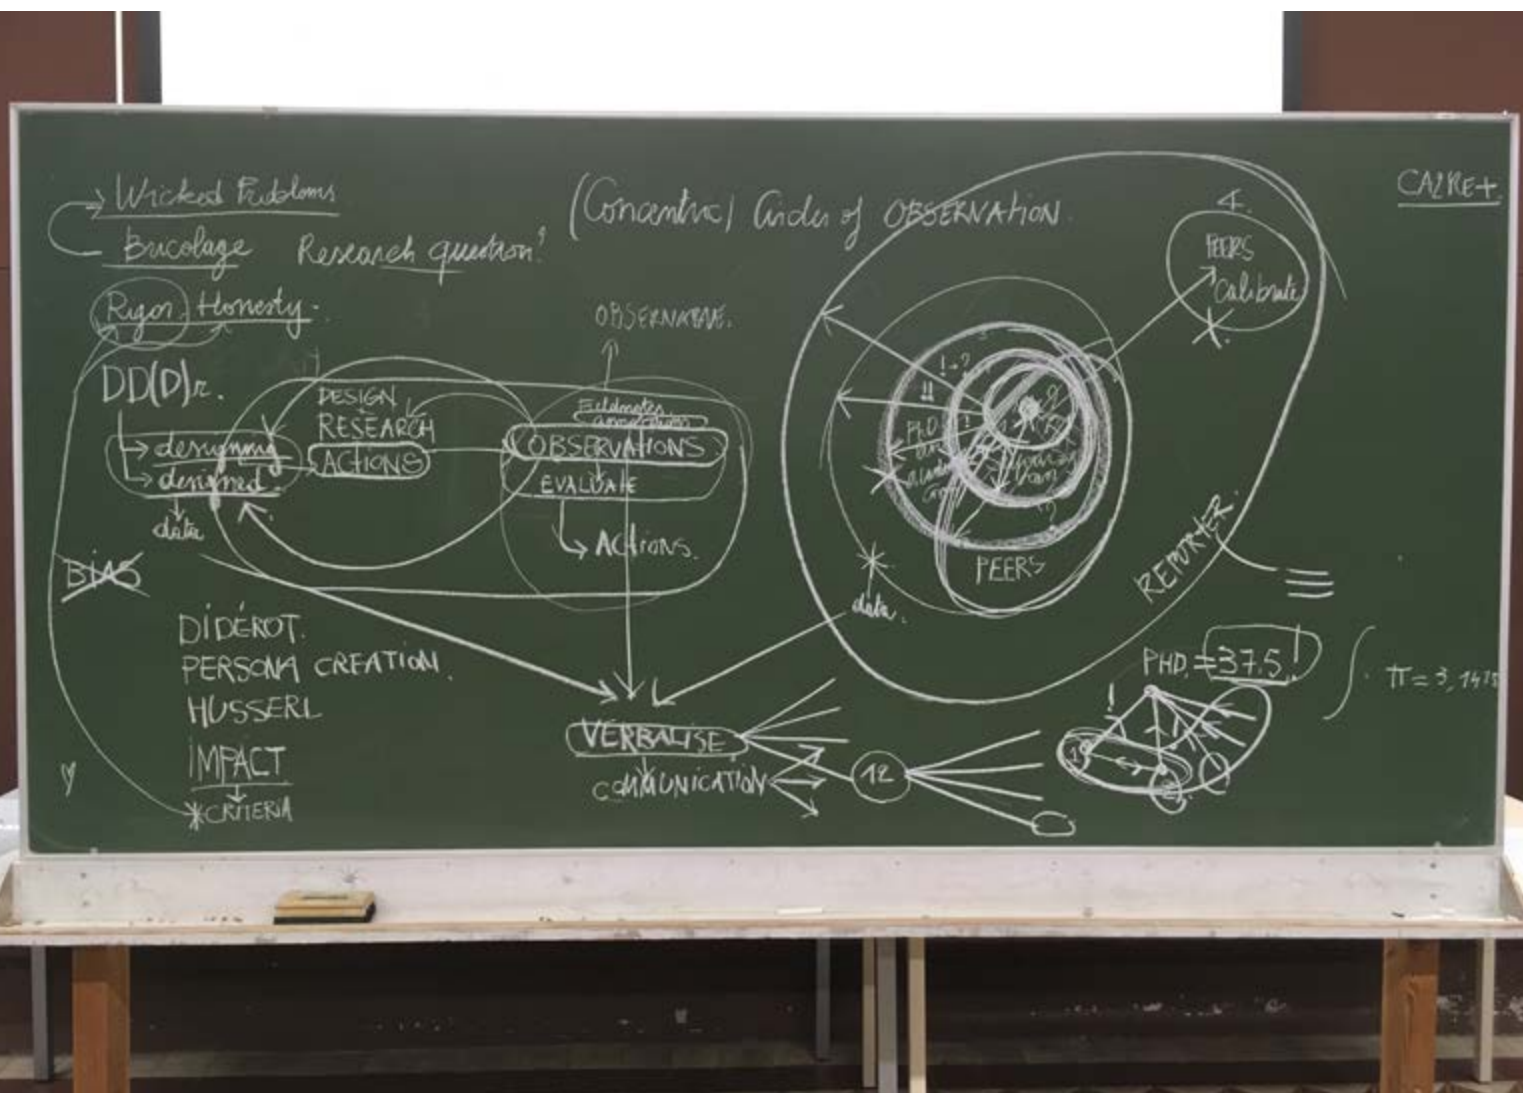 Wicked Problems
Bricolage
Research question?
(Concentric) Circles of OBSERVATION
CA2RE+
Rigor. Honesty.
DD(D)r.
designing
designed.
data
BIAS
DESIGN
+
RESEARCH
ACTIONS
Fieldnotes
OBSERVATIONS
EVALUATE
ACTIONS.
4.
PEERS
Calibrate
!→?
!!
PhD
PEERS
data.
REPORTER.
DIDEROT.
PERSONA CREATION.
HUSSERL
IMPACT
*CRITERIA
VERBALISE
COMMUNICATION
12
PHD. = 37,5!
!
1
2